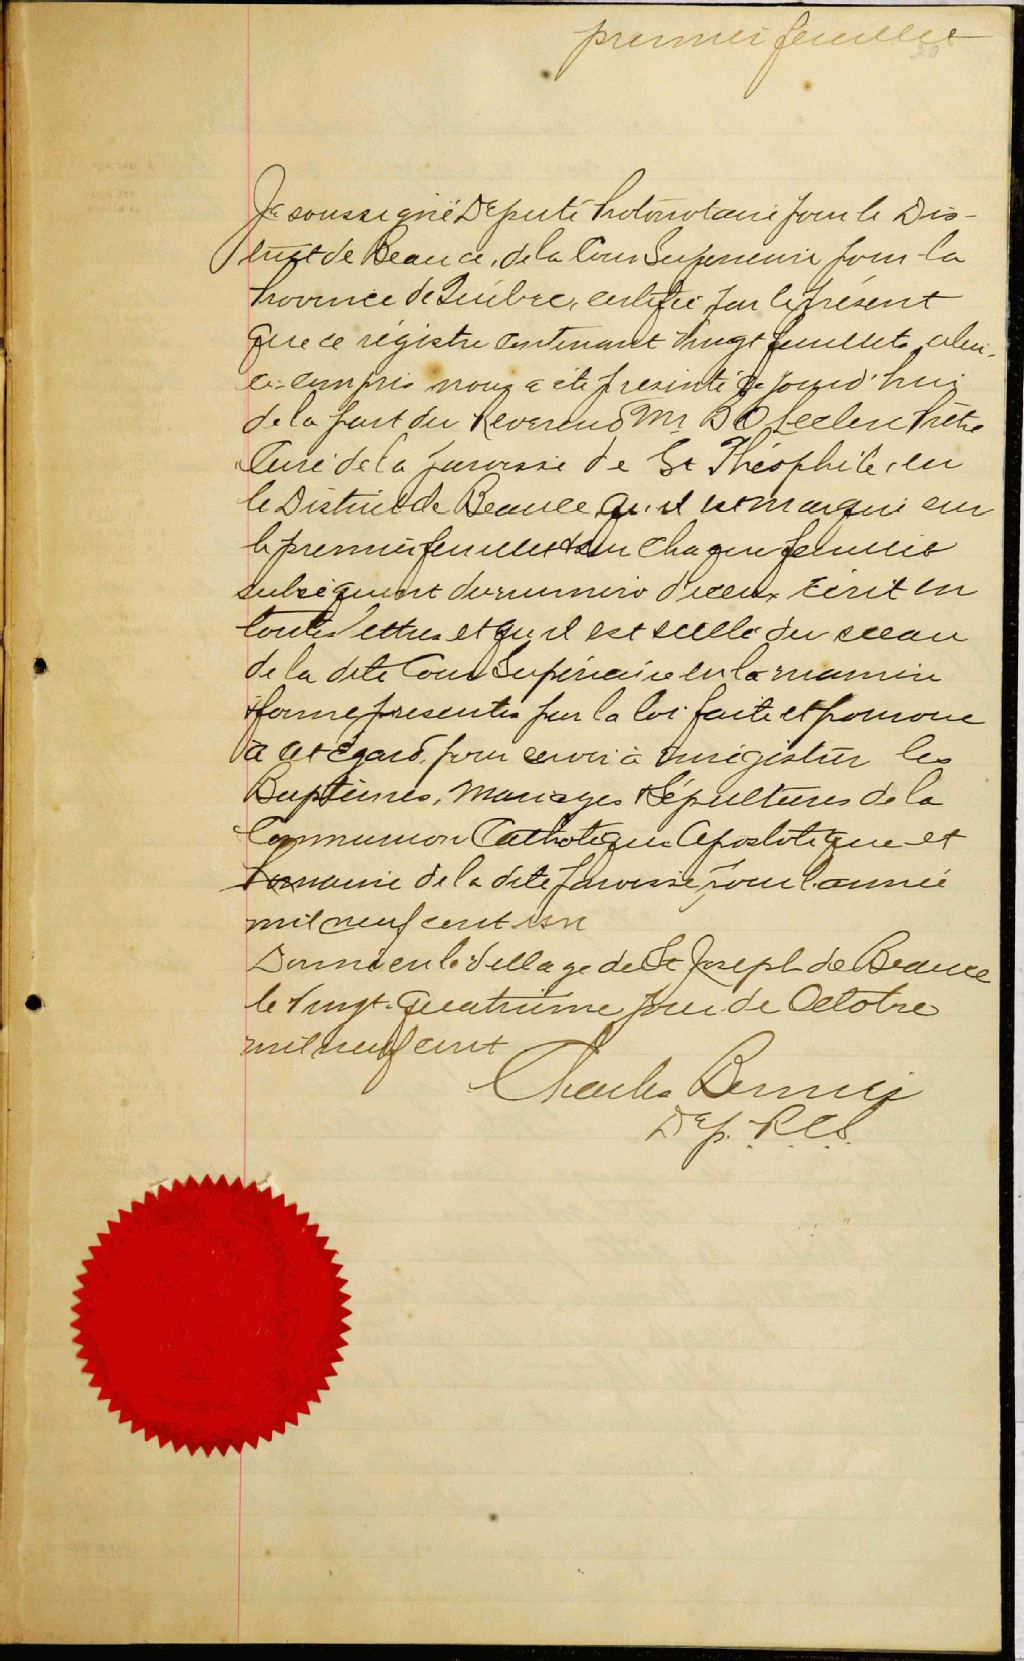 premier feuillet
20
Je soussigné Député Protonotaire pour le Dis-
trict de Beauce, de la Cour Superieure pour la
Province de Québec, certifie par le présent
que ce régistre contenant vingt feuillets celui-
ci compris nous a été presenté ce jourd'hui
de la part du Reverend Mr B O Leclerc Prêtre
Curé de la paroisse de St Théophile, en
le District de Beauce qu'il est marqué sur
le premier feuillet & sur chaque feuillet
subséquent du numero d'iceux écrit en
toutes lettres et qu'il est scellé du sceau
de la dite Cour Supérieure en la manière
& forme presentes par la loi faite et pourvue
à cet égard, pour servir à enrégistrer les
Baptêmes, Mariages & Sépultures de la
Communion Catholique Apostolique et
Romaine de la dite paroisse, pour l'année
mil neuf cent un
Donné en le village de St Joseph de Beauce
le vingt-quatrième jour de Octobre
mil neuf cent
Charles
Dep. P.C.S.